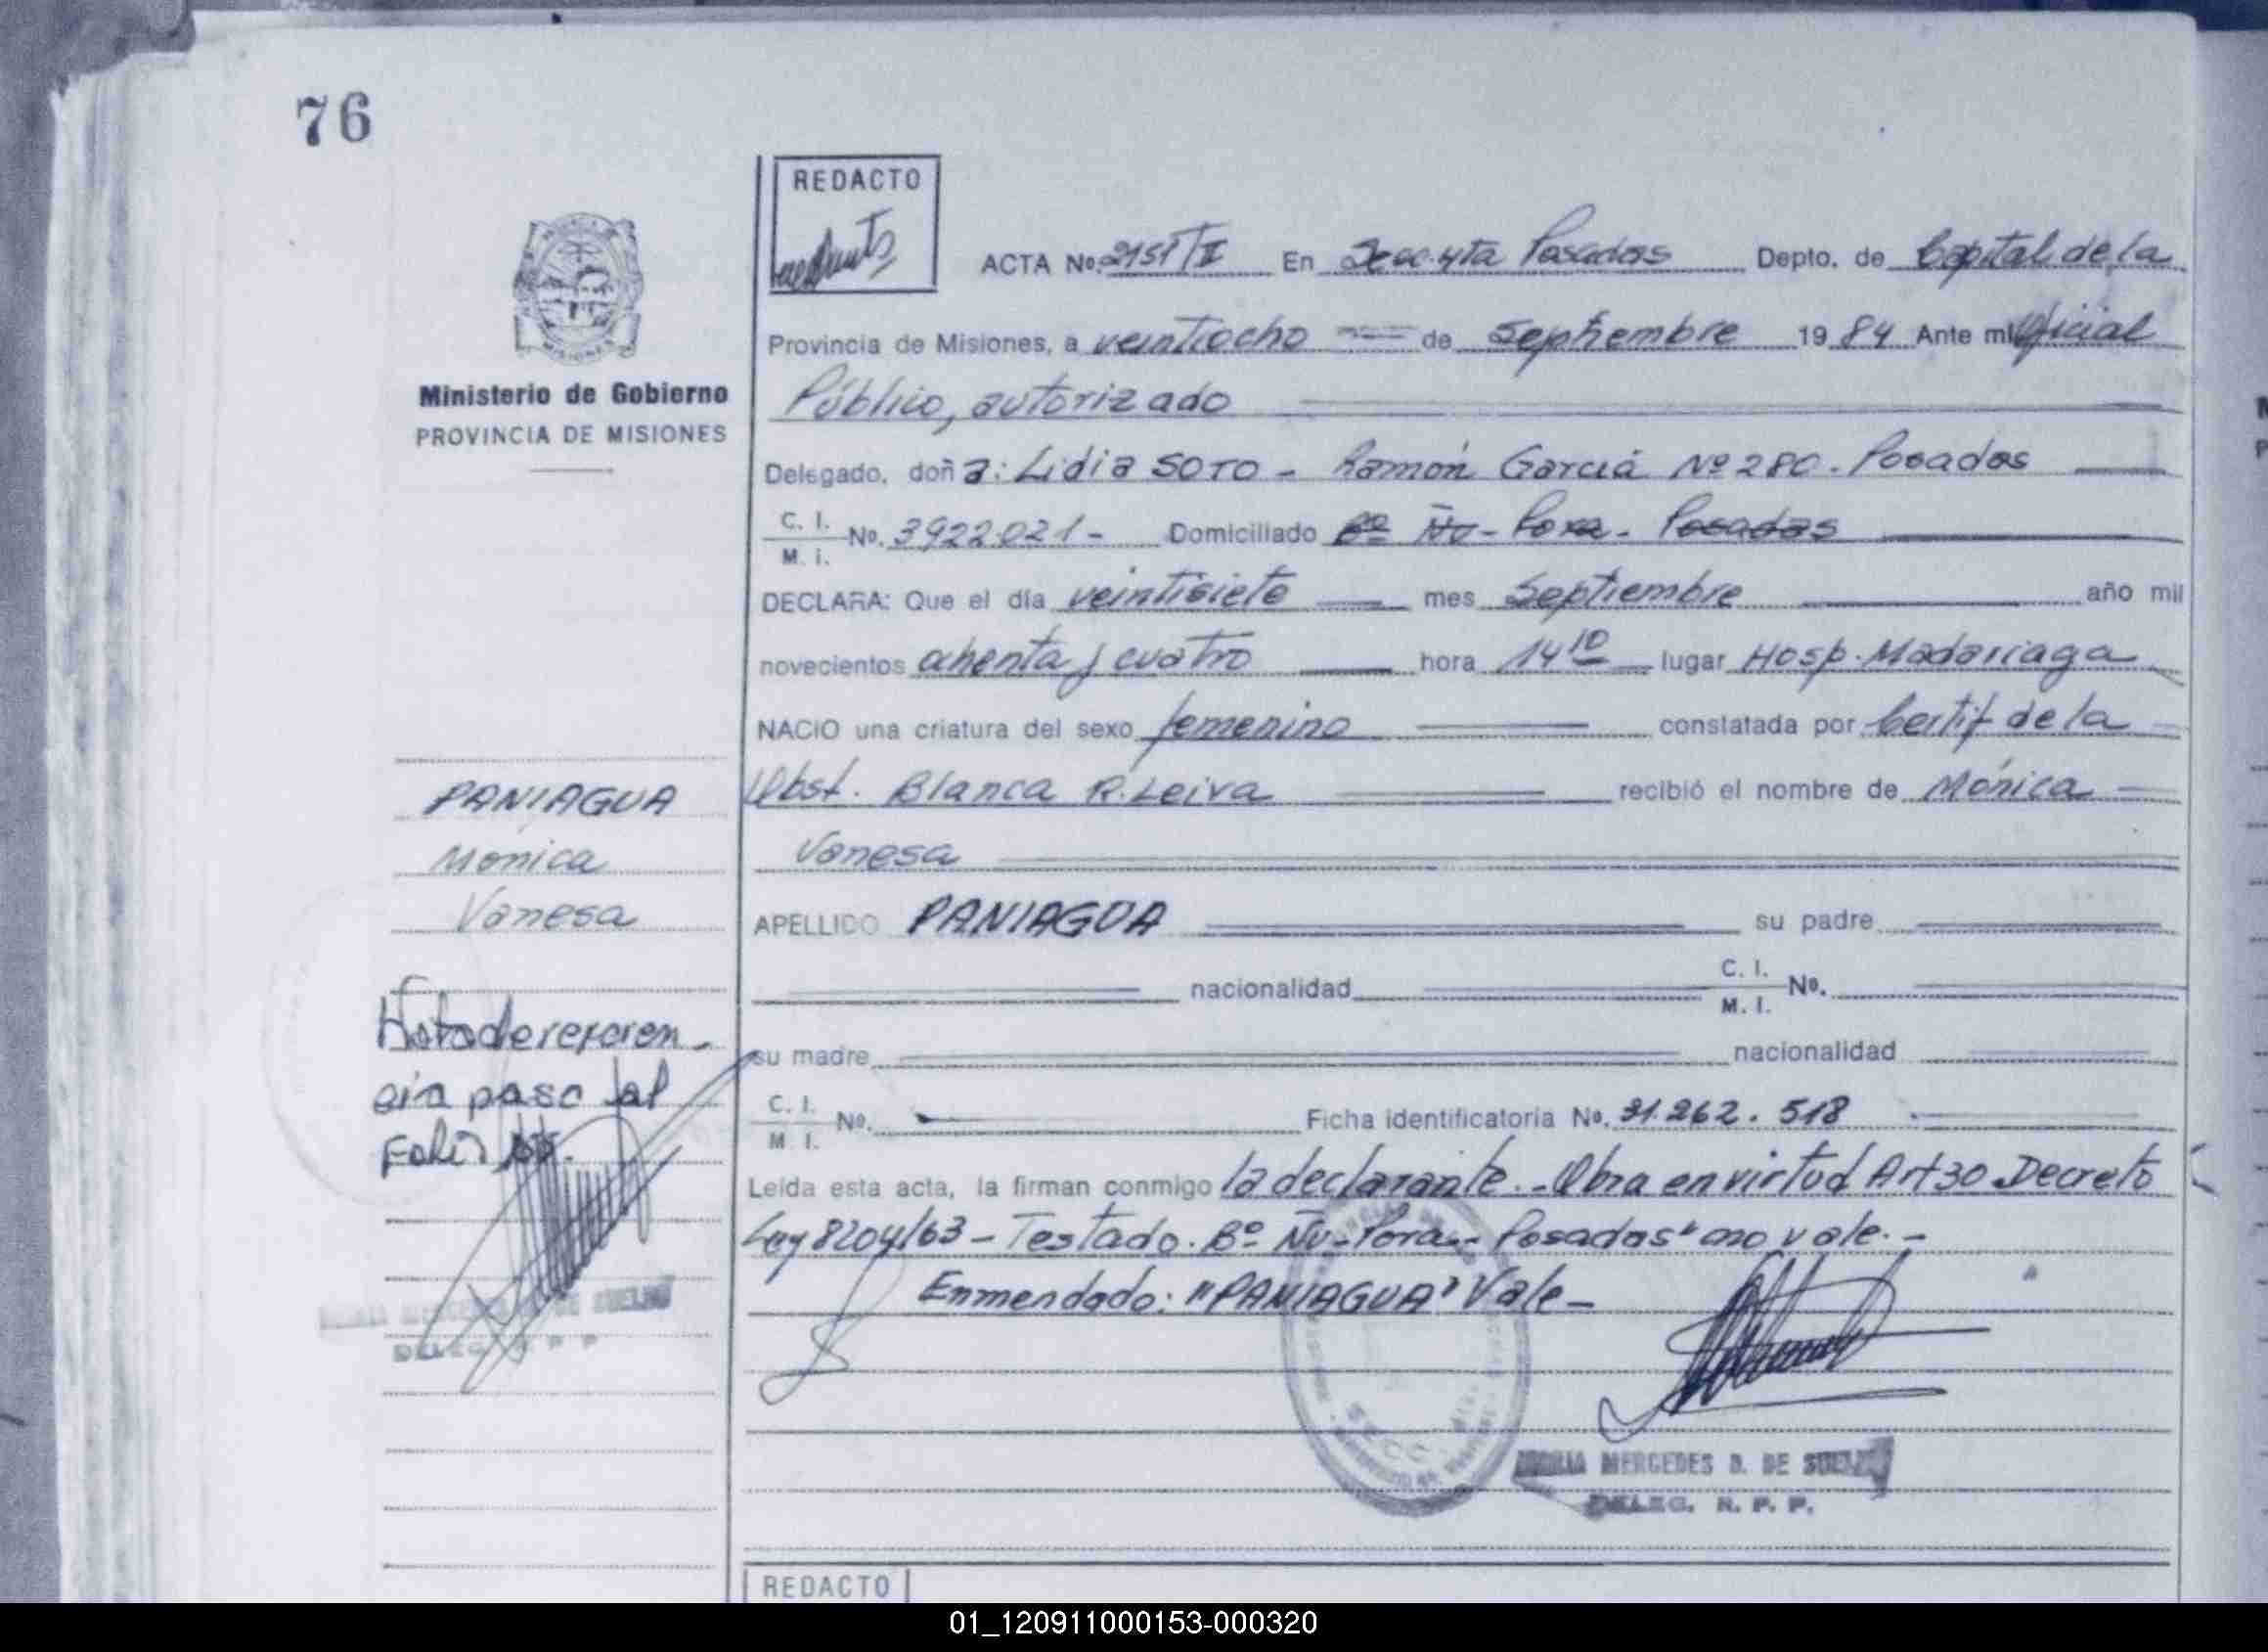 76
REDACTO
ACTA No. 2151/II En Secc. 4ta Posadas Depto. de Capital de la
Provincia de Misiones, a veintiocho de Septiembre 1984 Ante mi Oficial
Público, autorizado
MISIONES
Ministerio de Gobierno
PROVINCIA DE MISIONES
Delegado, doña: Lidia SOTO - Ramón García Nº 280. Posadas
C. I. / M. i. No. 3922021- Domiciliado Bº Ñu-Pora- Posadas
DECLARA: Que el día veintisiete mes Septiembre año mil
novecientos ochenta y cuatro hora 14 10 lugar Hosp. Madariaga
NACIO una criatura del sexo femenino constatada por Certif de la
Obst. Blanca R. Leiva recibió el nombre de Mónica
Vanesa
PANIAGUA
Monica
Vanesa
APELLIDO PANIAGUA su padre
nacionalidad C. I. / M. I. No.
su madre nacionalidad
C. I. / M. I. No. Ficha identificatoria No. 31.262.518
Nota de referen-
cia pasa al
Folio
Leída esta acta, la firman conmigo la declarante.-Obra en virtud Art 30 Decreto
Ley 8204/63 - Testado. Bº Ñu-Pora- Posadas" no vale.-
Enmendado: "PANIAGUA" Vale-
DE SUELDO
DELEG. R. P. P.
MERCEDES B. DE
DELEG. R. P. P.
REDACTO
01_120911000153-000320